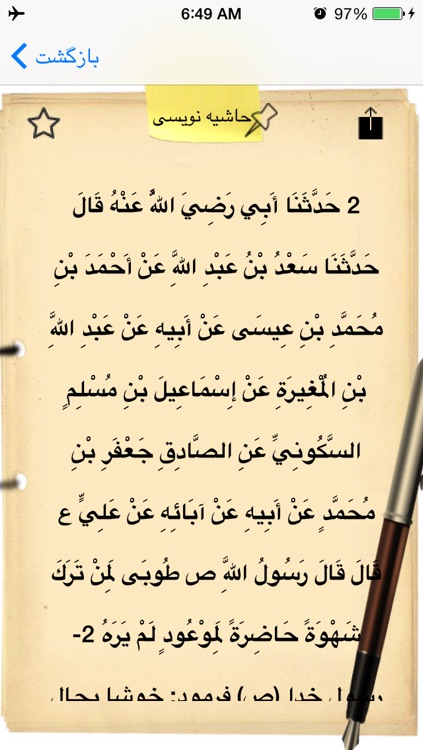 6:49 AM
97%
بازگشت
حاشیه نویسی
2 حَدَّثَنَا أَبِي رَضِيَ اللَّهُ عَنْهُ قَالَ
حَدَّثَنَا سَعْدُ بْنُ عَبْدِ اللَّهِ عَنْ أَحْمَدَ بْنِ
مُحَمَّدِ بْنِ عِيسَى عَنْ أَبِيهِ عَنْ عَبْدِ اللَّهِ
بْنِ الْمُغِيرَةِ عَنْ إِسْمَاعِيلَ بْنِ مُسْلِمٍ
السَّكُونِيِّ عَنِ الصَّادِقِ جَعْفَرِ بْنِ
مُحَمَّدٍ عَنْ أَبِيهِ عَنْ آبَائِهِ عَنْ عَلِيٍّ ع
قَالَ قَالَ رَسُولُ اللَّهِ ص طُوبَى لِمَنْ تَرَكَ
شَهْوَةً حَاضِرَةً لِمَوْعُودٍ لَمْ يَرَهُ 2-
رسول خدا (ص) فرمود: خوشا بحال